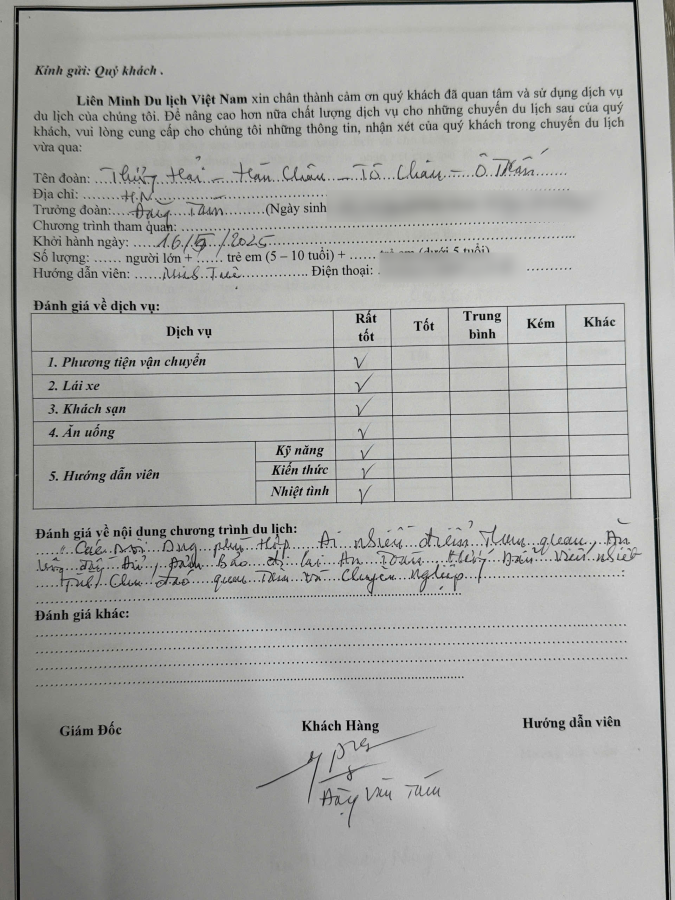 Kính gửi: Quý khách .
Liên Minh Du lịch Việt Nam xin chân thành cảm ơn quý khách đã quan tâm và sử dụng dịch vụ
du lịch của chúng tôi. Để nâng cao hơn nữa chất lượng dịch vụ cho những chuyến du lịch sau của quý
khách, vui lòng cung cấp cho chúng tôi những thông tin, nhận xét của quý khách trong chuyến du lịch
vừa qua:
Tên đoàn: Thượng Hải - Hàng Châu - Tô Châu - Ô Trấn
Địa chỉ: H.N
Trưởng đoàn: (Ngày sinh
Chương trình tham quan:
Khởi hành ngày: 16/5/2025
Số lượng: ...... người lớn + ...... trẻ em (5 – 10 tuổi) + ...... trẻ em (dưới 5 tuổi)
Hướng dẫn viên: Minh Tuệ Điện thoại:
Đánh giá về dịch vụ:
Dịch vụ Rất tốt Tốt Trung bình Kém Khác
1. Phương tiện vận chuyển ✓
2. Lái xe ✓
3. Khách sạn ✓
4. Ăn uống ✓
5. Hướng dẫn viên Kỹ năng ✓
Kiến thức ✓
Nhiệt tình ✓
Đánh giá về nội dung chương trình du lịch:
nội dung phù hợp. Đi nhiều điểm tham quan, Ăn
uống đầy đủ, đảm bảo đi lại An toàn, hướng dẫn viên nhiệt
tình chu đáo quan tâm và chuyên nghiệp
Đánh giá khác:
Giám Đốc Khách Hàng Hướng dẫn viên
Văn Tám